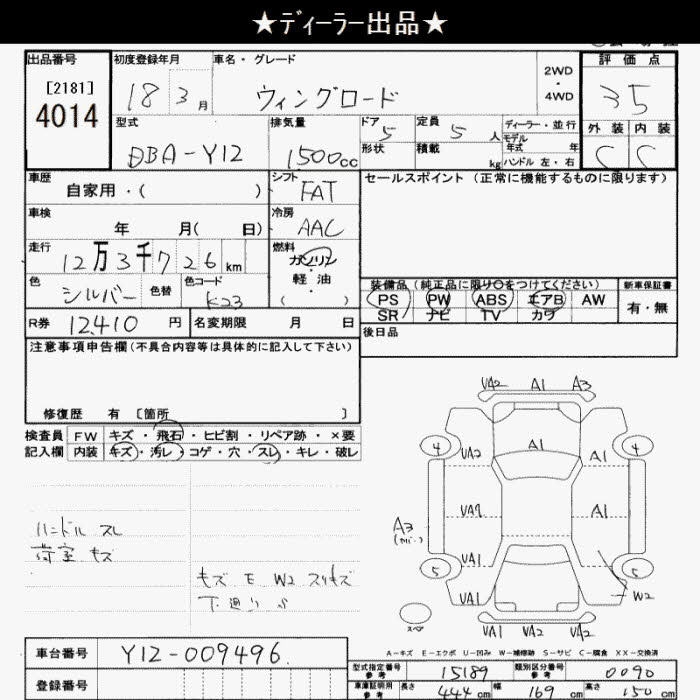 ★ディーラー出品★
出品番号 初度登録年月 車名・グレード 評価点
[2181] 18 3月 ウィングロード 2WD・4WD 3.5
4014 型式 排気量 ドア 5 定員 5人 ディーラー・並行 外装 内装
DBA-Y12 1500cc 形状 積載 kg モデル年式 年 C C
ハンドル 左・右
車歴 自家用・( ) シフト FAT セールスポイント (正常に機能するものに限ります)
車検 年 月( 日) 冷房 AAC
走行 12万3千726km 燃料 ガソリン・軽油・( )
色 シルバー 色替 色コード K23 装備品 (純正品に限り○をつけてください) 新車保証書
PS PW ABS エアB AW 有・無
R券 12,410円 名変期限 月 日 SR ナビ TV カワ
注意事項申告欄(不具合内容等は具体的に記入して下さい) 後日品
修復歴 有 〔箇所 〕
VA2 A1 A3
検査員 FW キズ・飛石・ヒビ割・リペア跡・×要
記入欄 内装 キズ・汚レ・コゲ・穴・スレ・キレ・破レ
4 VA2 A1 A1 4
A3 A1
ハンドル スレ
荷室 キズ
5 VA1 5
キズ E W2 スリキズ
VA1 W2
スペア VA1 VA2 VA2
A-キズ E-エクボ U-凹み W-補修跡 S-サビ C-腐食 XX-交換済
車台番号 Y12-009496 型式指定番号 参考 15189 類別区分番号 参考 0090
登録番号 車庫証明用 参考 長さ 444cm 幅 169cm 高さ 150cm